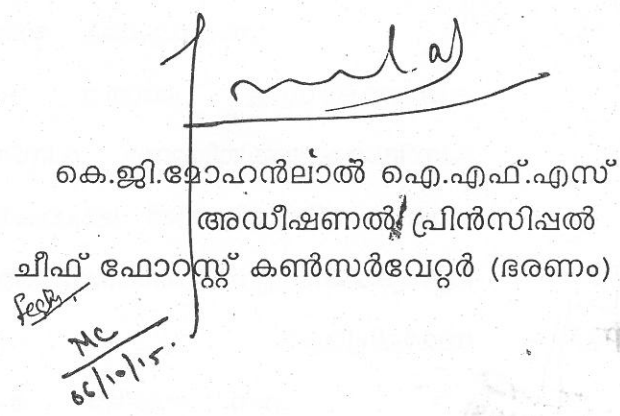 കെ.ജി.മോഹൻലാൽ ഐ.എഫ്.എസ്
അഡീഷണൽ പ്രിൻസിപ്പൽ
ചീഫ് ഫോറസ്റ്റ് കൺസർവേറ്റർ (ഭരണം)
MC
06/10/15.